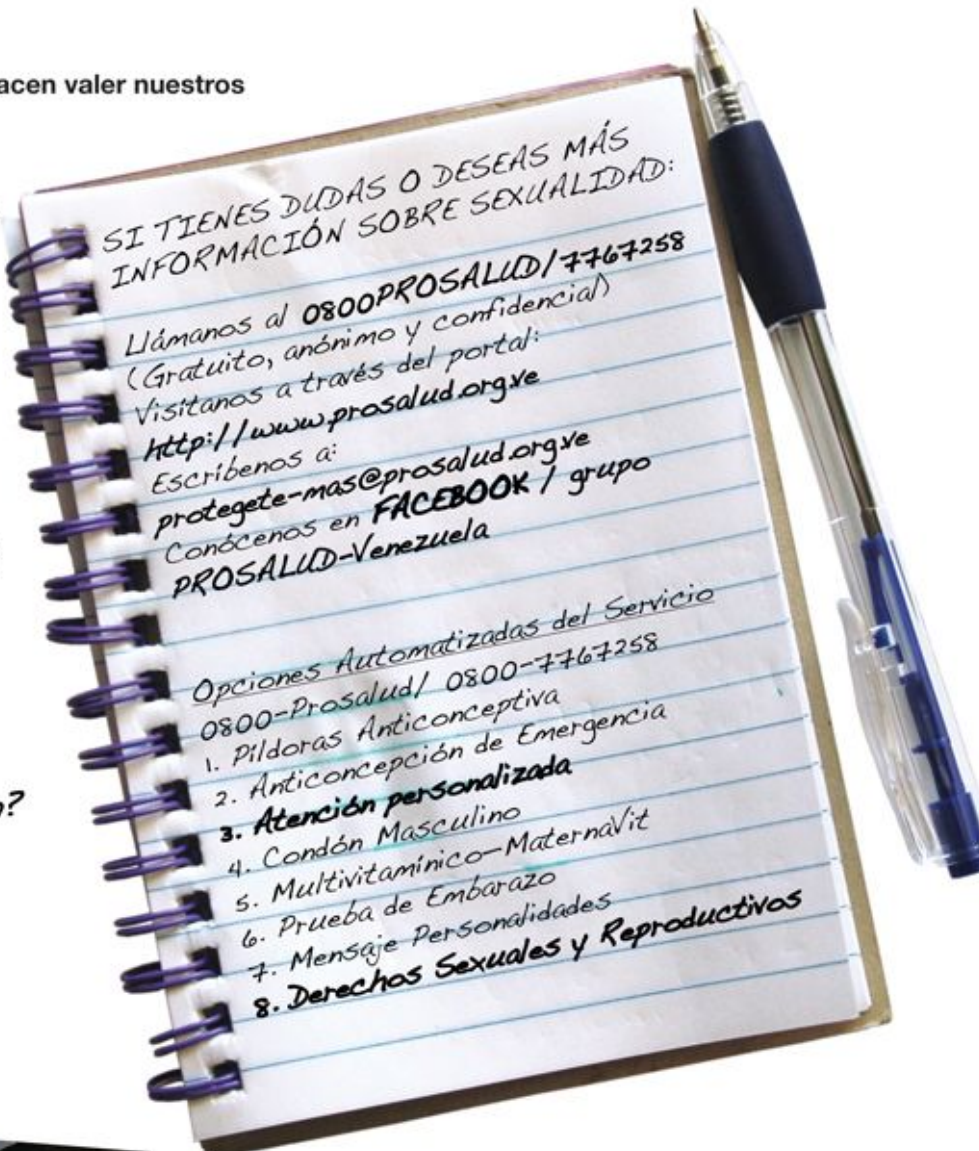 acen valer nuestros
SI TIENES DUDAS O DESEAS MÁS
INFORMACIÓN SOBRE SEXUALIDAD:
Llámanos al 0800PROSALUD/7767258
(Gratuito, anónimo y confidencial)
Visítanos a través del portal:
http://www.prosalud.org.ve
Escríbenos a:
protegete-mas@prosalud.org.ve
Conócenos en FACEBOOK / grupo
PROSALUD-Venezuela
Opciones Automatizadas del Servicio
0800-Prosalud/ 0800-7767258
1. Píldoras Anticonceptiva
2. Anticoncepción de Emergencia
3. Atención personalizada
4. Condón Masculino
5. Multivitamínico-MaternaVit
6. Prueba de Embarazo
7. Mensaje Personalidades
8. Derechos Sexuales y Reproductivos